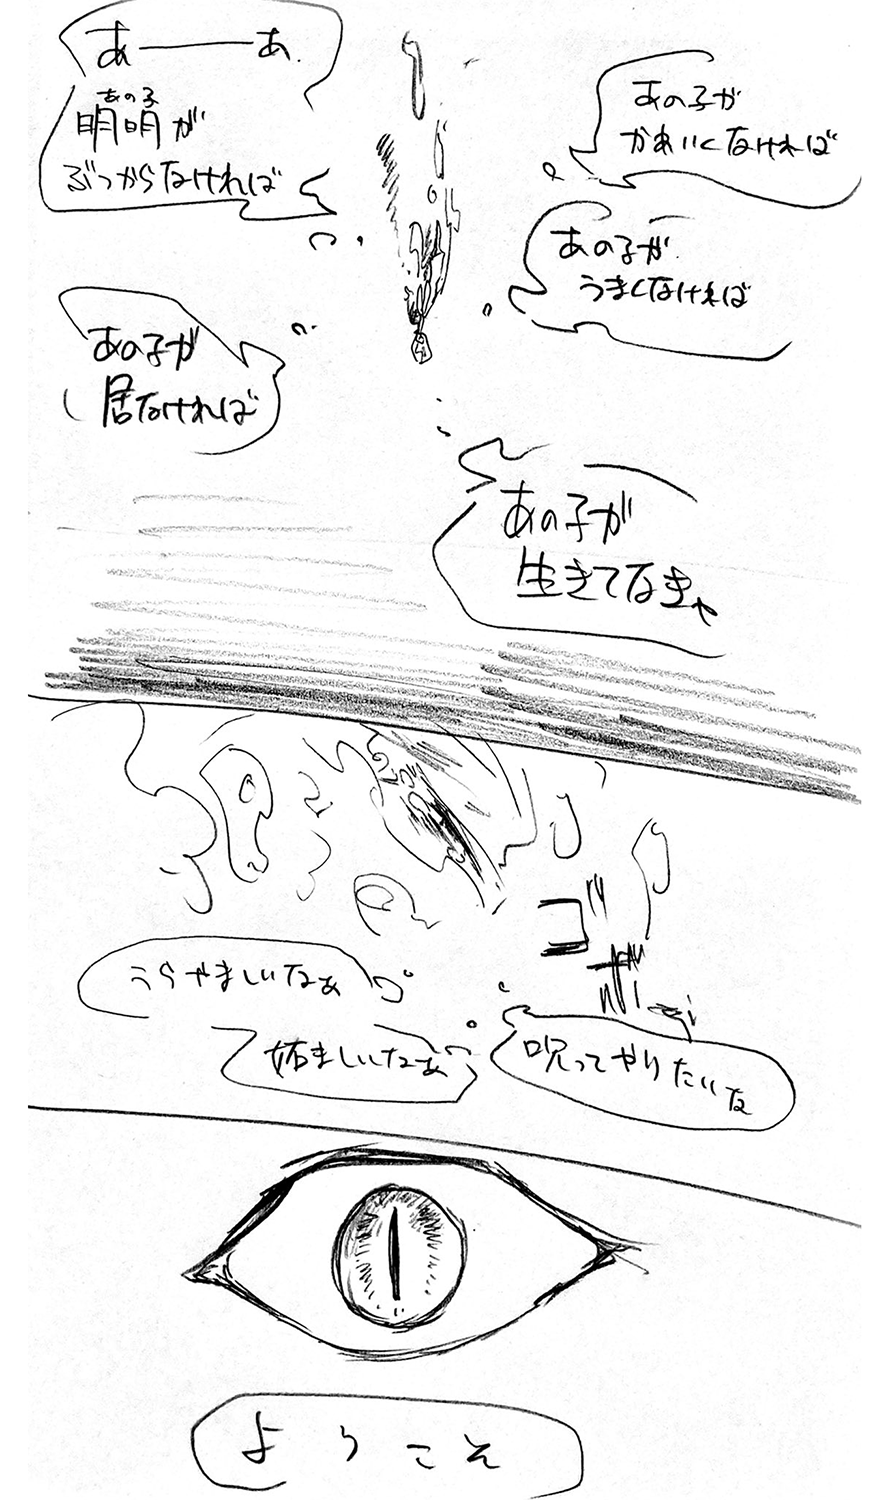 あーーあ
明明が
あの子
ぶつからなければ
あの子が
かあいくなければ
あの子が
うまくなければ
あの子が
居なければ
あの子が
生きてなきゃ
うらやましいなぁ
妬ましいなぁ
呪ってやりたいな
ようこそ